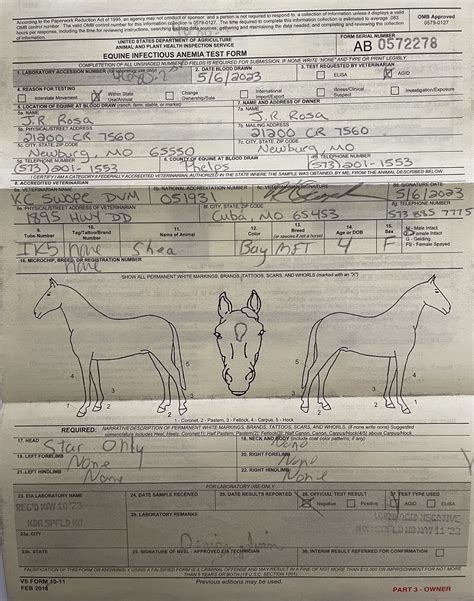 According to the Paperwork Reduction Act of 1995, an agency may not conduct or sponsor, and a person is not required to respond to, a collection of information unless it displays a valid
OMB control number. The valid OMB control number for this information collection is 0579-0127. The time required to complete this information collection is estimated to average .083
hours per response, including the time for reviewing instructions, searching existing data sources, gathering and maintaining the data needed, and completing and reviewing the collection
OMB Approved
0579-0127
UNITED STATES DEPARTMENT OF AGRICULTURE
ANIMAL AND PLANT HEALTH INSPECTION SERVICE
EQUINE INFECTIOUS ANEMIA TEST FORM
FORM SERIAL NUMBER
AB 0572278
COMPLETION OF ALL UNSHADED FIELDS IS REQUIRED FOR SUBMISSION. IF NONE WRITE "NONE" AND TYPE OR PRINT LEGIBLY.
1. LABORATORY ACCESSION NUMBER (for laboratory use only)
2. DATE BLOOD DRAWN
5/6/2023
3. TEST REQUESTED BY VETERINARIAN
ELISA
AGID
4. REASON FOR TESTING
Interstate Movement
Within State Use/Annual
Change Ownership/Sale
International Import/Export
Illness/Clinical Suspect
Investigation/Exposure
5. LOCATION OF EQUINE AT BLOOD DRAW (ranch, farm, stable, or market)
7. NAME AND ADDRESS OF OWNER
5a. NAME
J.R. Rosa
7a. NAME
J.R. Rosa
5b. PHYSICAL/STREET ADDRESS
21200 CR 7560
7b. MAILING ADDRESS
21200 CR 7560
5c. CITY, STATE, ZIP CODE
Newburg, MO 65550
7c. CITY, STATE, ZIP CODE
Newburg, MO
5d. TELEPHONE NUMBER
(573) 201-1553
6. COUNTY OF EQUINE AT BLOOD DRAW
Phelps
(573) 201-1553
I CERTIFY I AM A CATEGORY FEDERALLY ACCREDITED VETERINARIAN AUTHORIZED IN THE STATE WHERE THE SAMPLE WAS OBTAINED BY ME, FROM THE ANIMAL DESCRIBED BELOW.
8. ACCREDITED VETERINARIAN
KC Swope DVM
8b. NATIONAL ACCREDITATION NUMBER
05193
8c. VETERINARIAN SIGNATURE
8d. SIGNATURE DATE
5/6/2023
8e. PHYSICAL/STREET ADDRESS OF VETERINARIAN
1895 HWY DD
8f. CITY, STATE, ZIP CODE
Cuba, MO 65453
8g. TELEPHONE NUMBER
573 885 7775
9. Tube Number
10. Tag/Tattoo/Brand Number
11. Name of Animal
12. Color
13. Breed (or species if not a horse)
14. Age or DOB
15. Sex
M - Male Intact
F - Female Intact
G - Gelding
FS - Female Spayed
None
Shea
Bay
MFT
4
F
16. MICROCHIP, BREED, OR REGISTRATION NUMBER
None
SHOW ALL PERMANENT WHITE MARKINGS, BRANDS, TATTOOS, SCARS, AND WHORLS (marked with an "X")
4
3
2
1
5
5
4
3
1
2
1 - Coronet, 2 - Pastern, 3 - Fetlock, 4 - Carpus, 5 - Hock
REQUIRED:
NARRATIVE DESCRIPTION OF PERMANENT WHITE MARKINGS, BRANDS, TATTOOS, SCARS, AND WHORLS. (If none write none) Suggested
nomenclature includes Heel, Heels, Coronet(1); Half Pastern, Pastern(2); Fetlock(3); Half Canon, Canon, Carpus/Hock(4/5) above Carpus/Hock.
17. HEAD
Star Only
18. NECK AND BODY (Include coat color patterns, if any)
None
19. LEFT FORELIMB
None
20. RIGHT FORELIMB
None
21. LEFT HINDLIMB
None
22. RIGHT HINDLIMB
None
FOR LABORATORY USE ONLY
23. EIA LABORATORY NAME
24. DATE SAMPLE RECEIVED
25. DATE RESULTS REPORTED
26. OFFICIAL TEST RESULT
Negative
Positive
27. TEST TYPE USED
ELISA
AGID
REC'D MAY 10 '23
28. LABORATORY REMARKS
23c. STATE
29. SIGNATURE OF NVSL - APPROVED EIA TECHNICIAN
30. INTERIM RESULT REFERRED FOR CONFIRMATION
FALSIFICATION OF THIS FORM IS A CRIMINAL OFFENSE AND MAY RESULT IN A FINE OF NOT MORE THAN $10,000 OR IMPRISONMENT FOR NOT MORE
THAN 5 YEARS OR BOTH (18 U.S.C. SECTION 1001).
VS FORM 10-11
FEB 2018
Previous editions may be used.
PART 3 - OWNER